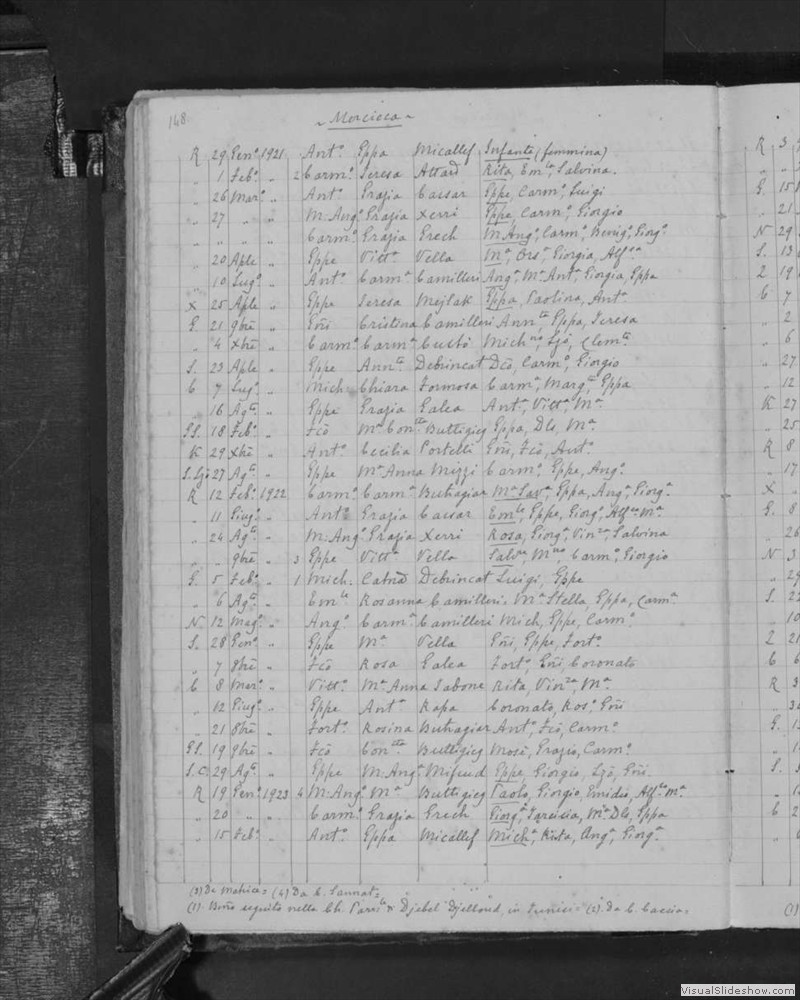 148.
~ Mercieca ~
R 29 Gen.º 1921 Ant.º Eppa Micallef Infante (femmina)
„ 1 Feb.º „ 2 Carm.º Teresa Attard Rita, Em.la, Salvina.
„ 26 Mar.º „ Ant.º Grazia Caesar Eppe, Carm.º, Luigi
„ 27 „ „ M. Ang.º Grazia Xerri Eppe, Carm.º, Giorgio
„ „ „ „ Carm.º Grazia Grech M. Ang.º, Carm.º, Benig.º, Giorg.º
„ 20 Aple „ Eppe Vitt.ª Vella M.ª, Ors.ª, Giorgia, Alf.sa
„ 10 Lug.º „ Ant.º Carm.ª Camilleri Ang.ª, M.ª Ant.ª, Giorgia, Eppa
X 25 Aple „ Eppe Teresa Mejlak Eppa, Paolina, Ant.ª
G. 21 9bre „ Gni Cristina Camilleri Ann.ta, Eppa, Teresa
„ 4 Xbre „ Carm.º Carm.ª Custò Mich.na, Ljd, Clem.ta
S. 23 Aple „ Eppe Ann.ta Debrincat Dco, Carm.º, Giorgio
C 7 Lug.º „ Mich. Chiara Formosa Carm.ª, Marg.ta, Eppa
„ 16 Ag.to „ Eppe Grazia Galea Ant.ª, Vitt.ª, M.ª
GS. 18 Feb.º „ Fco M.ª Con.tta Buttigieg Eppa, Dls, M.ª
K 29 Xbre „ Ant.º Cecilia Portelli Gni, Fco, Ant.º
S. Ljo 27 Ag.to „ Eppe M.ª Anna Mizzi Carm.º, Eppe, Ang.º
R 12 Feb.º 1922 Carm.º Carm.ª Buhagiar M.ª Sav.ª, Eppa, Ang.ª, Giorg.ª
„ 11 Giug.º „ Ant.º Grazia Caesar Em.le, Eppe, Giorg.º, Alf.so M.ª
„ 24 Ag.to „ M. Ang.º Grazia Xerri Rosa, Giorg.ª, Vin.za, Salvina
„ „ 9bre „ 3 Eppe Vitt.ª Vella Salv.re, M.no, Carm.º, Giorgio
G. 5 Feb.º „ 1 Mich. Catna Debrincat Luigi, Eppe
„ 6 Ag.to „ Em.le Rosanna Camilleri M.ª Stella, Eppa, Carm.ª
N 12 Mag.º „ Ang.º Carm.ª Camilleri Mich, Eppe, Carm.º
S. 28 Gen.º „ Eppe M.ª Vella Gni, Eppe, Fort.º
„ 7 8bre „ Fco Rosa Galea Fort.º, Gni, Coronato
C 8 Mar.º „ Vitt.º M.ª Anna Tabone Rita, Vin.za, M.ª
„ 12 Giug.º „ Eppe Ant.ª Rapa Coronato, Ros.º, Gni
„ 21 8bre „ Fort.º Rosina Buhagiar Ant.º, Fco, Carm.º
GS. 19 9bre „ Fco Con.tta Buttigieg Mosè, Grazio, Carm.º
S. C. 29 Ag.to „ Eppe M. Ang.ª Mifsud Eppe, Giorgio, Ljo, Gni.
R 19 Gen.º 1923 4 M. Ang.º M.ª Buttigieg Paolo, Giorgio, Emidio, Alf.so M.ª
„ 20 „ „ Carm.º Grazia Grech Giorg.ª, Tarcisia, M.ª Dls, Eppa
„ 15 Feb.º Ant.º Eppa Micallef Mich.ª, Rita, Ang.ª, Giorg.ª
(3) Da Matrice = (4) Da C. Sannat =
(1) Bmo seguito nella Ch. Parr.le Djebel Djelloud, in Tunisi = (2) Da C. Caccia =
R 3
G. 15
„ 21
N 29
S. 13
Z 19
C 7
„ 2
„ 6
„ 27
„ 12
K 27
„ 25
R 8
„ 17
X „
G. 8
„ 26
N 3
„ 29
S. 22
„ 10
Z 21
C 6
R 3
G. 13
S.
C 2
(1)
VisualSlideshow.com